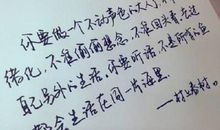 你要做个不动声色的大人了。不准情
绪化，不准偷偷想念，不准回头看。去过
自己另外的生活。你要听话，不是所有的鱼
都会生活在同一片海里。
——村上春树。